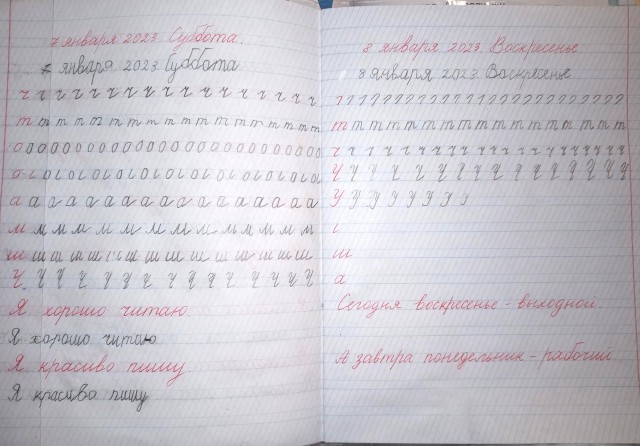 7 января 2023 Суббота.
7 января 2023 Суббота
г г г г г г г г г г г г г г г г г
т т т т т т т т т т т т т т т т т
о о о о о о о о о о о о о о о о о о о о о
а а а а а а а а а а а а а а
м м м м м м м м м м м м м
ш ш ш ш ш ш ш ш ш ш ш ш ш
У У У У У У У У У У У У У
Я хорошо читаю
Я хорошо читаю
Я красиво пишу
Я красиво пишу
8 января 2023. Воскресенье
8 января 2023. Воскресенье
т т т т т т т т т т т т т т т т
г г г г г г г г г г г г г г г г г г
У У У У У У У У У У У У У У
У У У У У У
ш
а
Сегодня воскресенье - выходной.
А завтра понедельник - рабочий